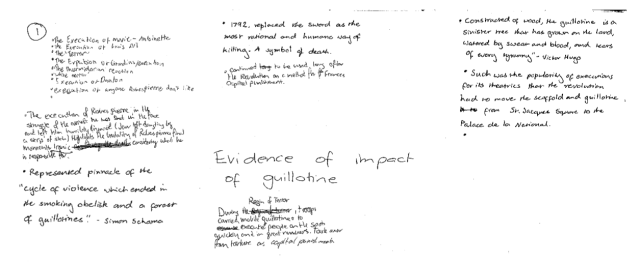 1
•The Execution of Marie-Antoinette
•The Execution of Louis XVI
•The "terror"
•The Expulsion or Girondins execution
•The thermidorian reaction
•"White terror"
Execution of Danton
•execution of anyone Robespierre didn't like
•The execution of Robespierre in the
struggle of the arrest he was shot in the face
and left him
a strip of skin) highlights the brutality of Robespierres final
moments Ironic considering what he
is responsible for.
• Represented pinnacle of the
"cycle of violence which ended in
the smoking obelisk and a forest
of guillotines." - Simon Schama
• 1792, replaced the sword as the
most rational and humane way of
killing. A symbol of death.
• continued to be used long after
the Revolution as a method of France's
Capital punishment.
Evidence of impact
of guillotine
Reign of Terror
During the, troops
carried mobile guillotines to
execute people on the spot
quickly and in great numbers. Took over
from torture as capital punishment
• Constructed of wood, the guillotine is a
sinister tree that has grown on the land,
watered by sweat and blood, and tears
of every tyranny" - Victor Hugo
• Such was the popularity of executions
for its theatrics that the revolution
had to move the scaffold and guillotine
from St. Jacques Square to the
Palace de la National.